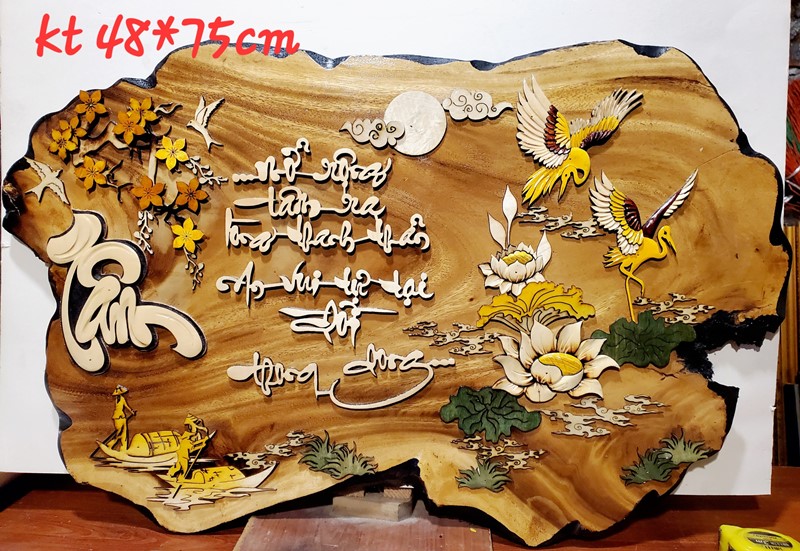 kt 48*75cm
Tâm
...mở rộng
tâm ra
lòng thanh thản
An vui tự tại
đời
thong dong...